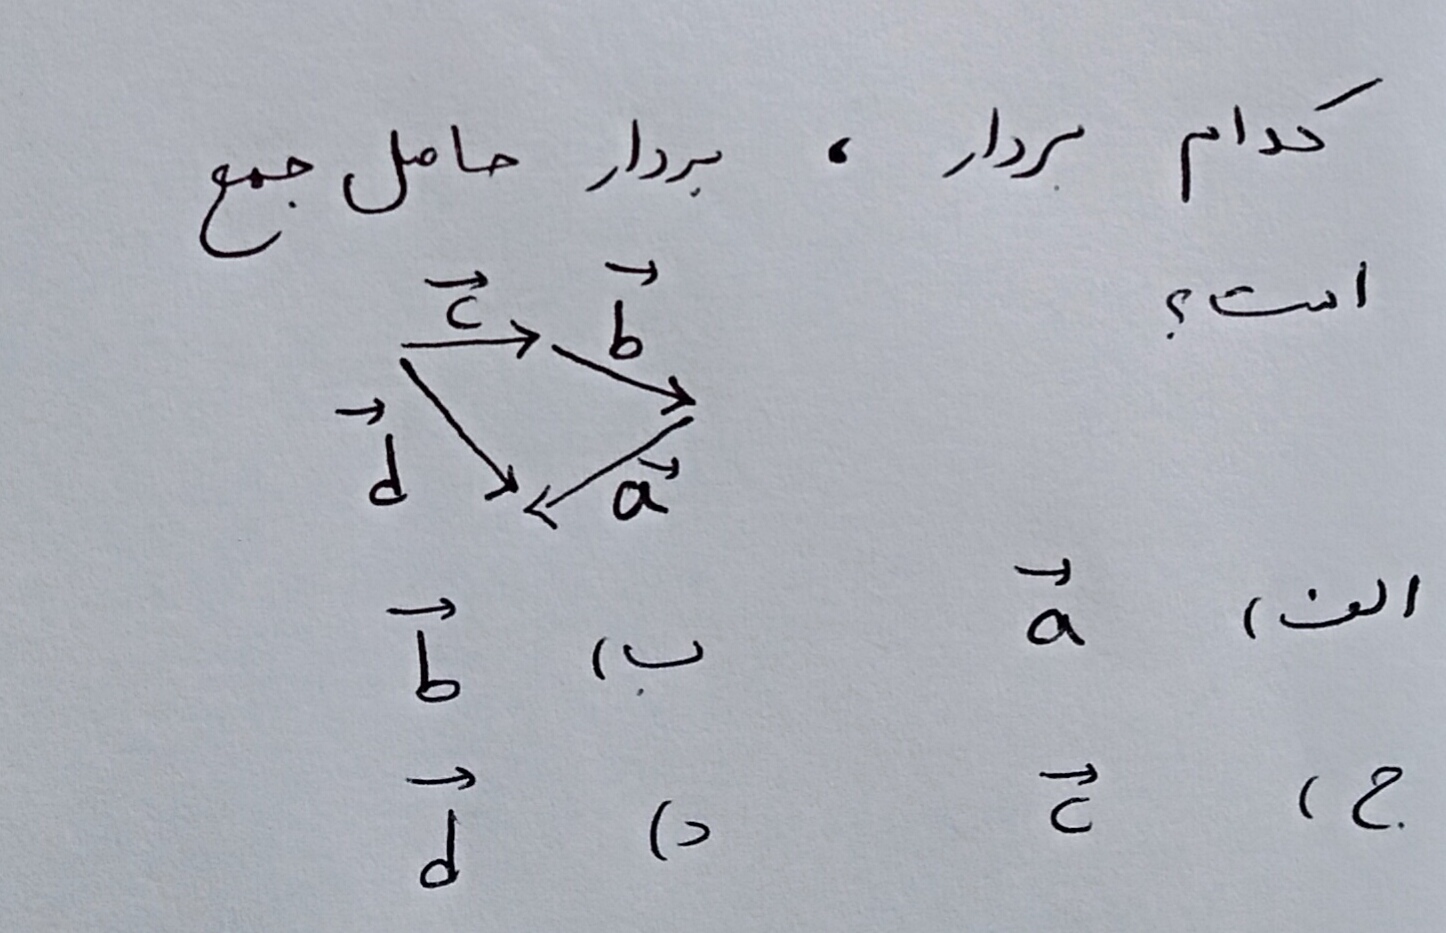 کدام بردار ، بردار حاصل جمع
است؟
c b
d
a
الف) a ب) b
ج) c د) d